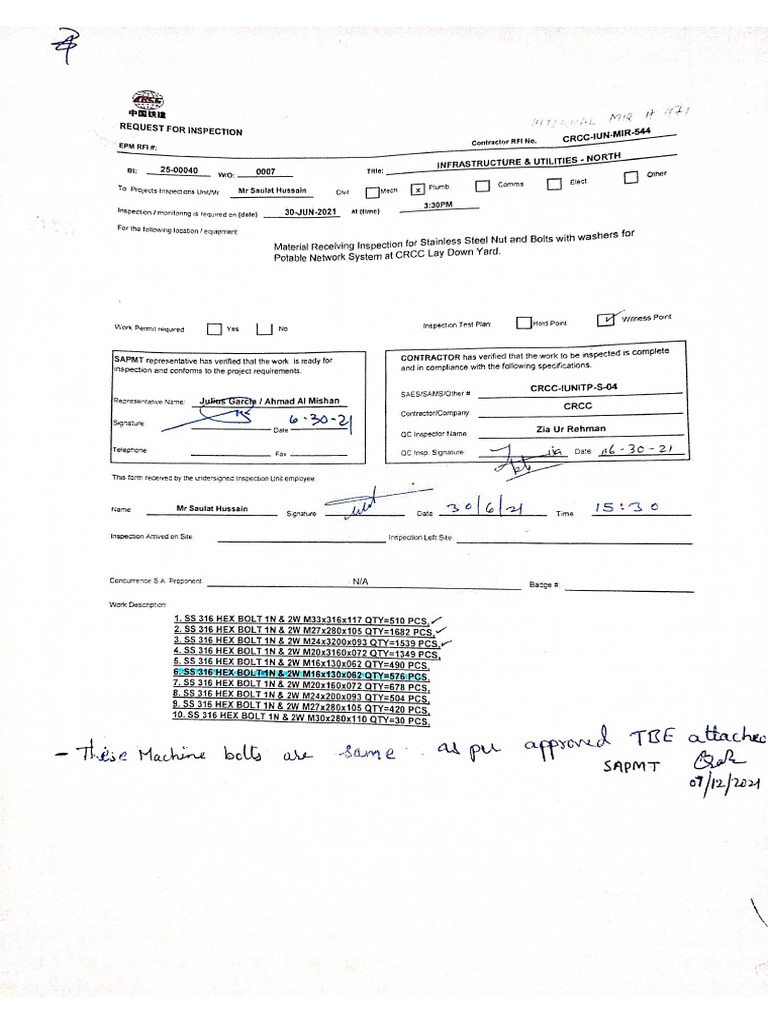 CRCC
中国铁建
REQUEST FOR INSPECTION
INTERNAL MIR # 471
EPM RFI #:
Contractor RFI No. CRCC-IUN-MIR-544
BI: 25-00040 W/O: 0007 Title: INFRASTRUCTURE & UTILITIES - NORTH
To Projects Inspections Unit/Mr Mr Saulat Hussain Civil Mech x Plumb. Comms Elect Other
Inspection / monitoring is required on (date) 30-JUN-2021 at (time) 3:30PM
For the following location / equipment
Material Receiving Inspection for Stainless Steel Nut and Bolts with washers for
Potable Network System at CRCC Lay Down Yard.
Work Permit required Yes No Inspection Test Plan: Hold Point ✓ Witness Point
SAPMT representative has verified that the work is ready for
inspection and conforms to the project requirements.
Representative Name: Julius Garcia / Ahmad Al Mishan
Signature Date 6-30-21
Telephone Fax
CONTRACTOR has verified that the work to be inspected is complete
and in compliance with the following specifications.
SAES/SAMS/Other # CRCC-IUNITP-S-04
Contractor/Company: CRCC
QC Inspector Name: Zia Ur Rehman
QC Insp. Signature: Date 06-30-21
This form received by the undersigned Inspection Unit employee
Name Mr Saulat Hussain Signature Date 30/6/21 Time 15:30
Inspection Arrived on Site: Inspection Left Site:
Concurrence S.A. Proponent N/A Badge #:
Work Description
1. SS 316 HEX BOLT 1N & 2W M33x316x117 QTY=510 PCS, ✓
2. SS 316 HEX BOLT 1N & 2W M27x280x105 QTY=1682 PCS, ✓
3. SS 316 HEX BOLT 1N & 2W M24x3200x093 QTY=1539 PCS, ✓
4. SS 316 HEX BOLT 1N & 2W M20x3160x072 QTY=1349 PCS,
5. SS 316 HEX BOLT 1N & 2W M16x130x062 QTY=490 PCS,
6. SS 316 HEX BOLT 1N & 2W M16x130x062 QTY=576 PCS,
7. SS 316 HEX BOLT 1N & 2W M20x160x072 QTY=678 PCS,
8. SS 316 HEX BOLT 1N & 2W M24x200x093 QTY=504 PCS,
9. SS 316 HEX BOLT 1N & 2W M27x280x105 QTY=420 PCS,
10. SS 316 HEX BOLT 1N & 2W M30x280x110 QTY=30 PCS,
- These Machine bolts are same as per approved TBE attached
SAPMT
07/12/2021